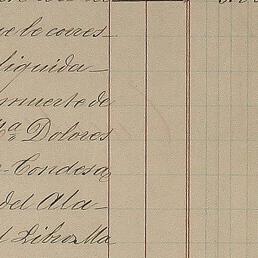 que le corres
liquida-
muerte de
Mª Dolores
Condesa
del Ala-
Libro Ma